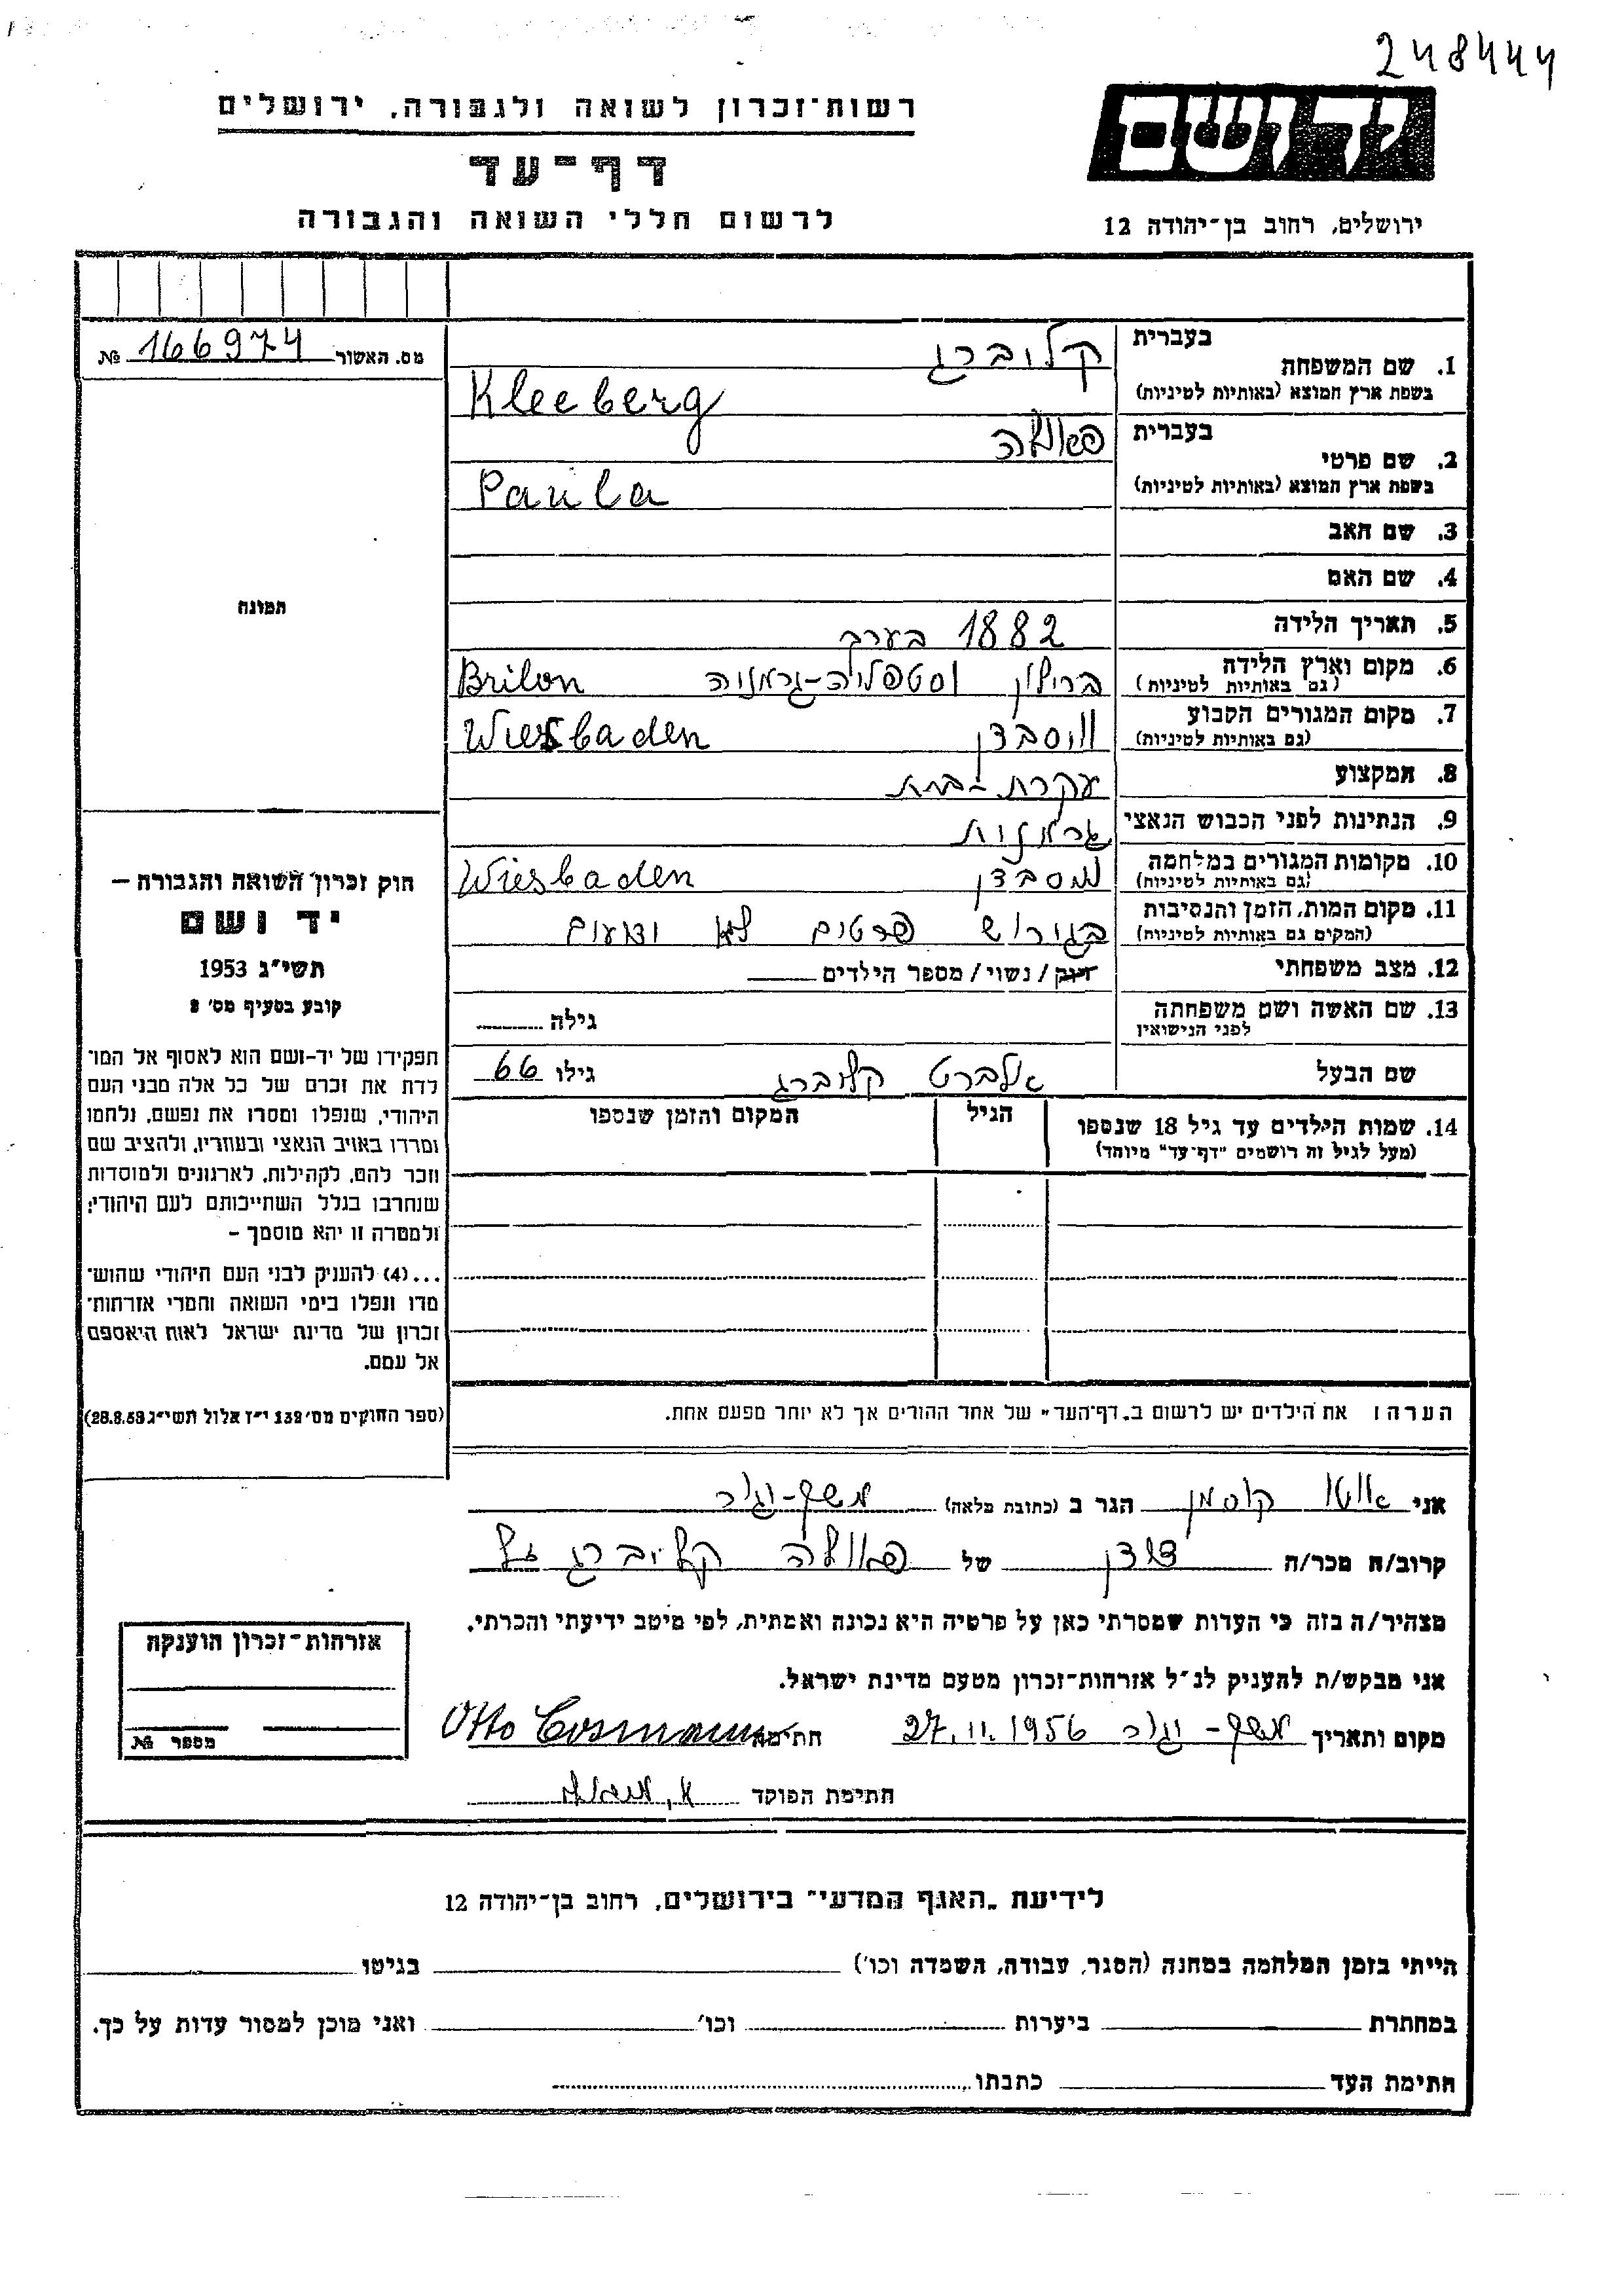 248444
יד ושם
רשות-זכרון לשואה ולגבורה, ירושלים
דף-עד
לרשום חללי השואה והגבורה
ירושלים, רחוב בן-יהודה 12
מס. האשור 166974 №
תמונה
חוק זכרון השואה והגבורה –
יד ושם
תשי"ג 1953
קובע בסעיף מס' 2
תפקידו של יד-ושם הוא לאסוף אל המו־
לדת את זכרם של כל אלה מבני העם
היהודי, שנפלו ומסרו את נפשם, נלחמו
ומרדו באויב הנאצי ובעוזריו, ולהציב שם
וזכר להם, לקהילות, לארגונים ולמוסדות
שנחרבו בגלל השתייכותם לעם היהודי;
ולמטרה זו יהא מוסמך –
...(4) להעניק לבני העם היהודי שהוש־
מדו ונפלו בימי השואה והמרי אזרחות־
זכרון של מדינת ישראל לאות היאספם
אל עמם.
(ספר החוקים מס' 132 י"ז אלול תשי"ג 28.8.53)
בעברית קלוברג
1. שם המשפחה
בשפת ארץ המוצא (באותיות לטיניות) Kleeberg
בעברית פאולה
2. שם פרטי
בשפת ארץ המוצא (באותיות לטיניות) Paula
3. שם האב
4. שם האם
5. תאריך הלידה 1882 בערך
6. מקום וארץ הלידה ברילון וסטפליה-גרמניה Brilon
(גם באותיות לטיניות)
7. מקום המגורים הקבוע ויסבדן Wiesbaden
(גם באותיות לטיניות)
8. המקצוע עקרת-בית
9. הנתינות לפני הכבוש הנאצי גרמנית
10. מקומות המגורים במלחמה ויסבדן Wiesbaden
(גם באותיות לטיניות)
11. מקום המות, הזמן והנסיבות בגירוש פרטים לא ידועים
(המקום גם באותיות לטיניות)
12. מצב משפחתי רווק / נשוי / מספר הילדים
13. שם האשה ושם משפחתה גילה
לפני הנישואין
שם הבעל אלברט קלוברג גילו 66
14. שמות הילדים עד גיל 18 שנספו הגיל המקום והזמן שנספו
(מעל לגיל זה רושמים "דף-עד" מיוחד)
הערה: את הילדים יש לרשום ב„דף-העד" של אחד ההורים אך לא יותר מפעם אחת.
אני אוטו קוסמן הגר ב (כתובת מלאה)
קרוב/ה מכר/ה של פאולה קליברג
מצהיר/ה בזה כי העדות שמסרתי כאן על פרטיה היא נכונה ואמתית, לפי מיטב ידיעתי והכרתי.
אני מבקש/ת להעניק לנ"ל אזרחות-זכרון מטעם מדינת ישראל.
מקום ותאריך 27.11.1956 חתימה Otto Cosmann
חתימת הפוקד
אזרחות-זכרון הוענקה
מספר №
לידיעת „האגף המדעי" בירושלים, רחוב בן-יהודה 12
הייתי בזמן המלחמה במחנה (הסגר, עבודה, השמדה וכו') בגיטו
במחתרת ביערות וכו' ואני מוכן למסור עדות על כך.
חתימת העד כתבתו